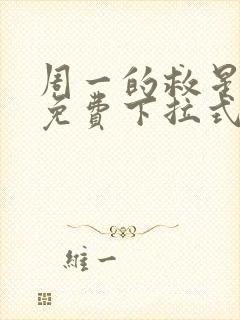 周一的救星
免费下拉式
維一